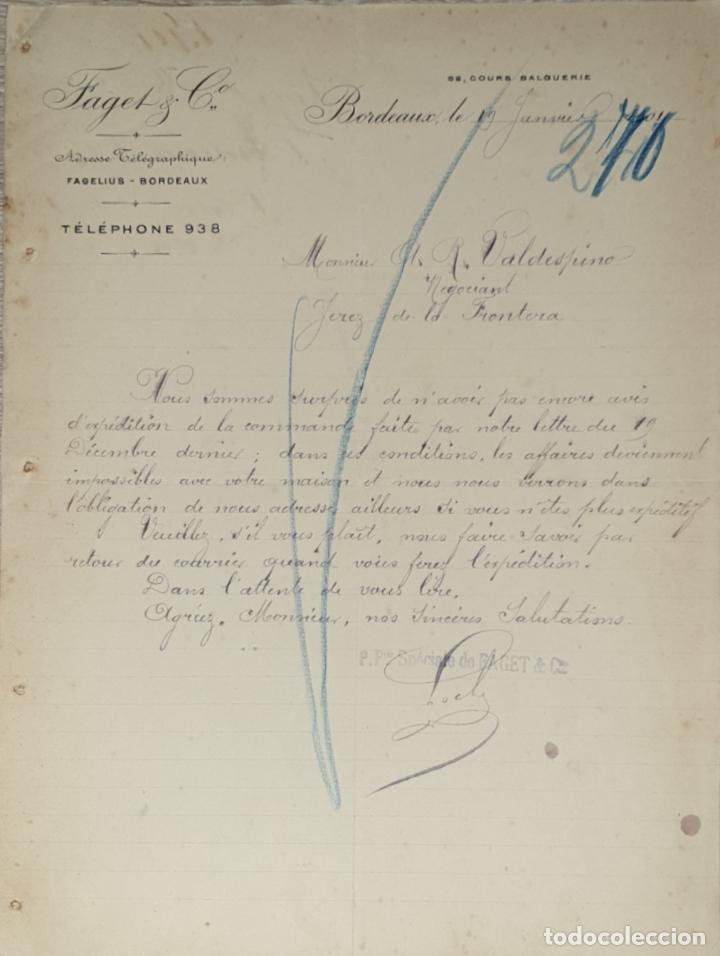 Faget & Co.
Adresse Télégraphique:
FAGELIUS - BORDEAUX
TÉLÉPHONE 938
COURS BALGUERIE
Bordeaux, le 19 Janvier
276
Monsieur R. Valdespino
Négociant
Jerez de la Frontera
Nous sommes surpris de n'avoir pas encore avis
d'expédition de la commande faite par notre lettre du 19
Décembre dernier; dans ces conditions, les affaires deviennent
impossibles avec votre maison et nous nous verrons dans
l'obligation de nous adresser ailleurs si vous n'êtes plus expéditif
Veuillez, s'il vous plaît, nous faire savoir par
retour du courrier quand vous ferez l'expédition.
Dans l'attente de vous lire,
Agréez, Monsieur, nos sincères Salutations.
P. Pon Spéciale de FAGET & Cie
todocoleccion.net